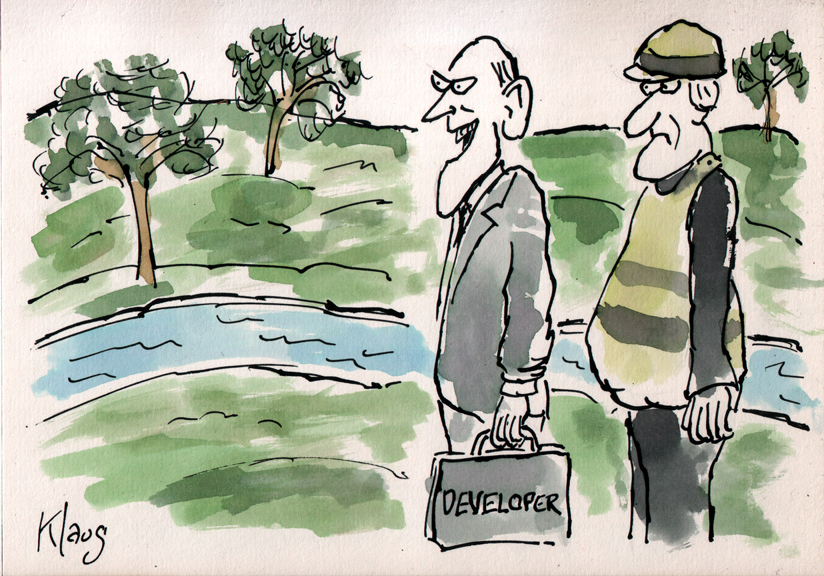 DEVELOPER
Klaus